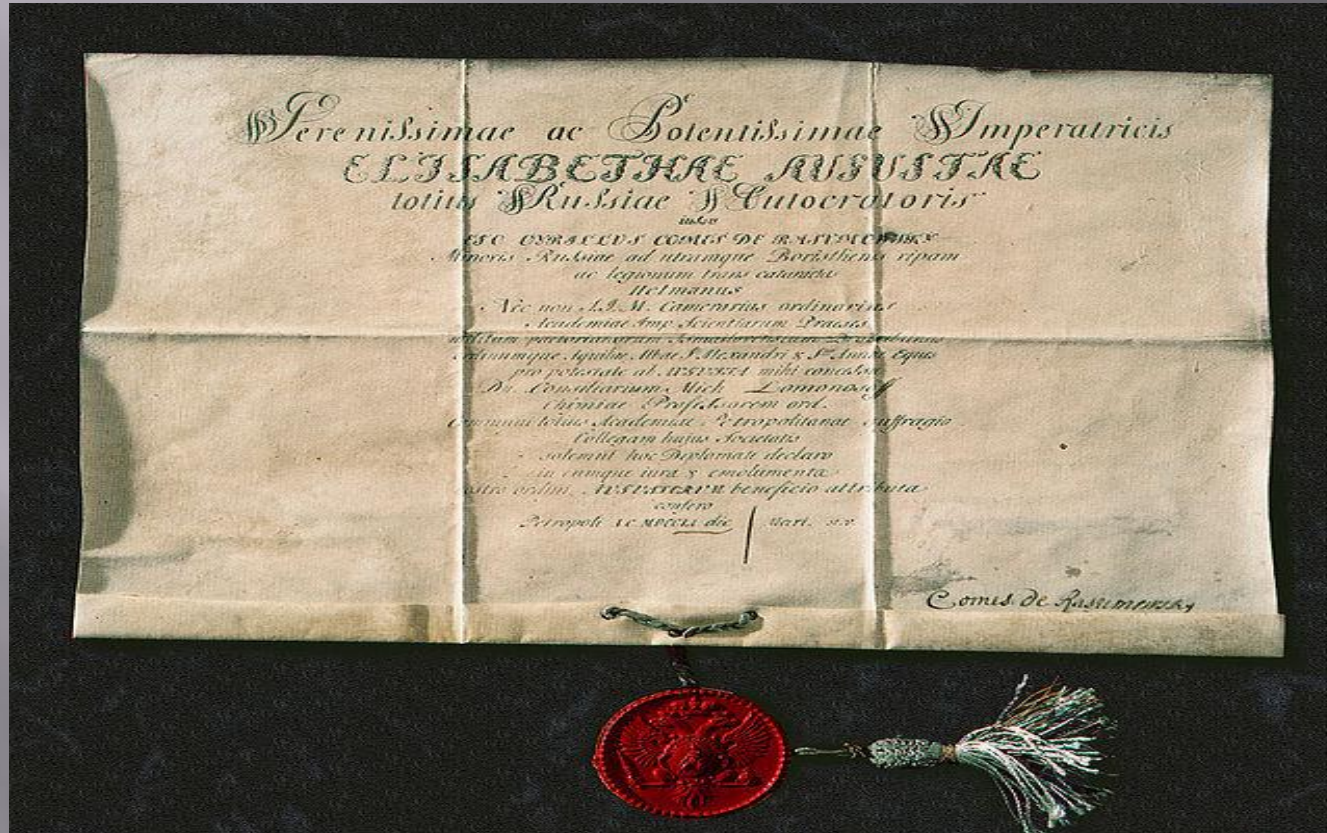 Serenissimae ac Potentissimae Imperatricis
ELISABETHAE AUGUSTAE
totius Russiae Autocratoris
iussu
EGO CYRILLUS COMES DE RASUMOWSKY
Minoris Russiae ad utramque Boristhenis ripam
ac legionum trans
Hetmanus
Nec non S.I.M. Camerarius ordinarius
Academiae Imp. Scientiarum Praeses
Ordinumque Aquilae Albae S. Alexandri & Stae Annae Eques
pro potestate ab AUGUSTA mihi concessa
Dn. Consiliarium Mich Lomonosoff
Chimiae Professorem ord.
totius Academiae Petropolitanae suffragio
Collegam hujus Societatis
solemni hoc Diplomate declaro
in eumque iura & emolumenta
nostro ordini AUGUSTORUM beneficio attributa
confero
Petropoli MDCCLI die Mart.
Comes de Rasumowsky